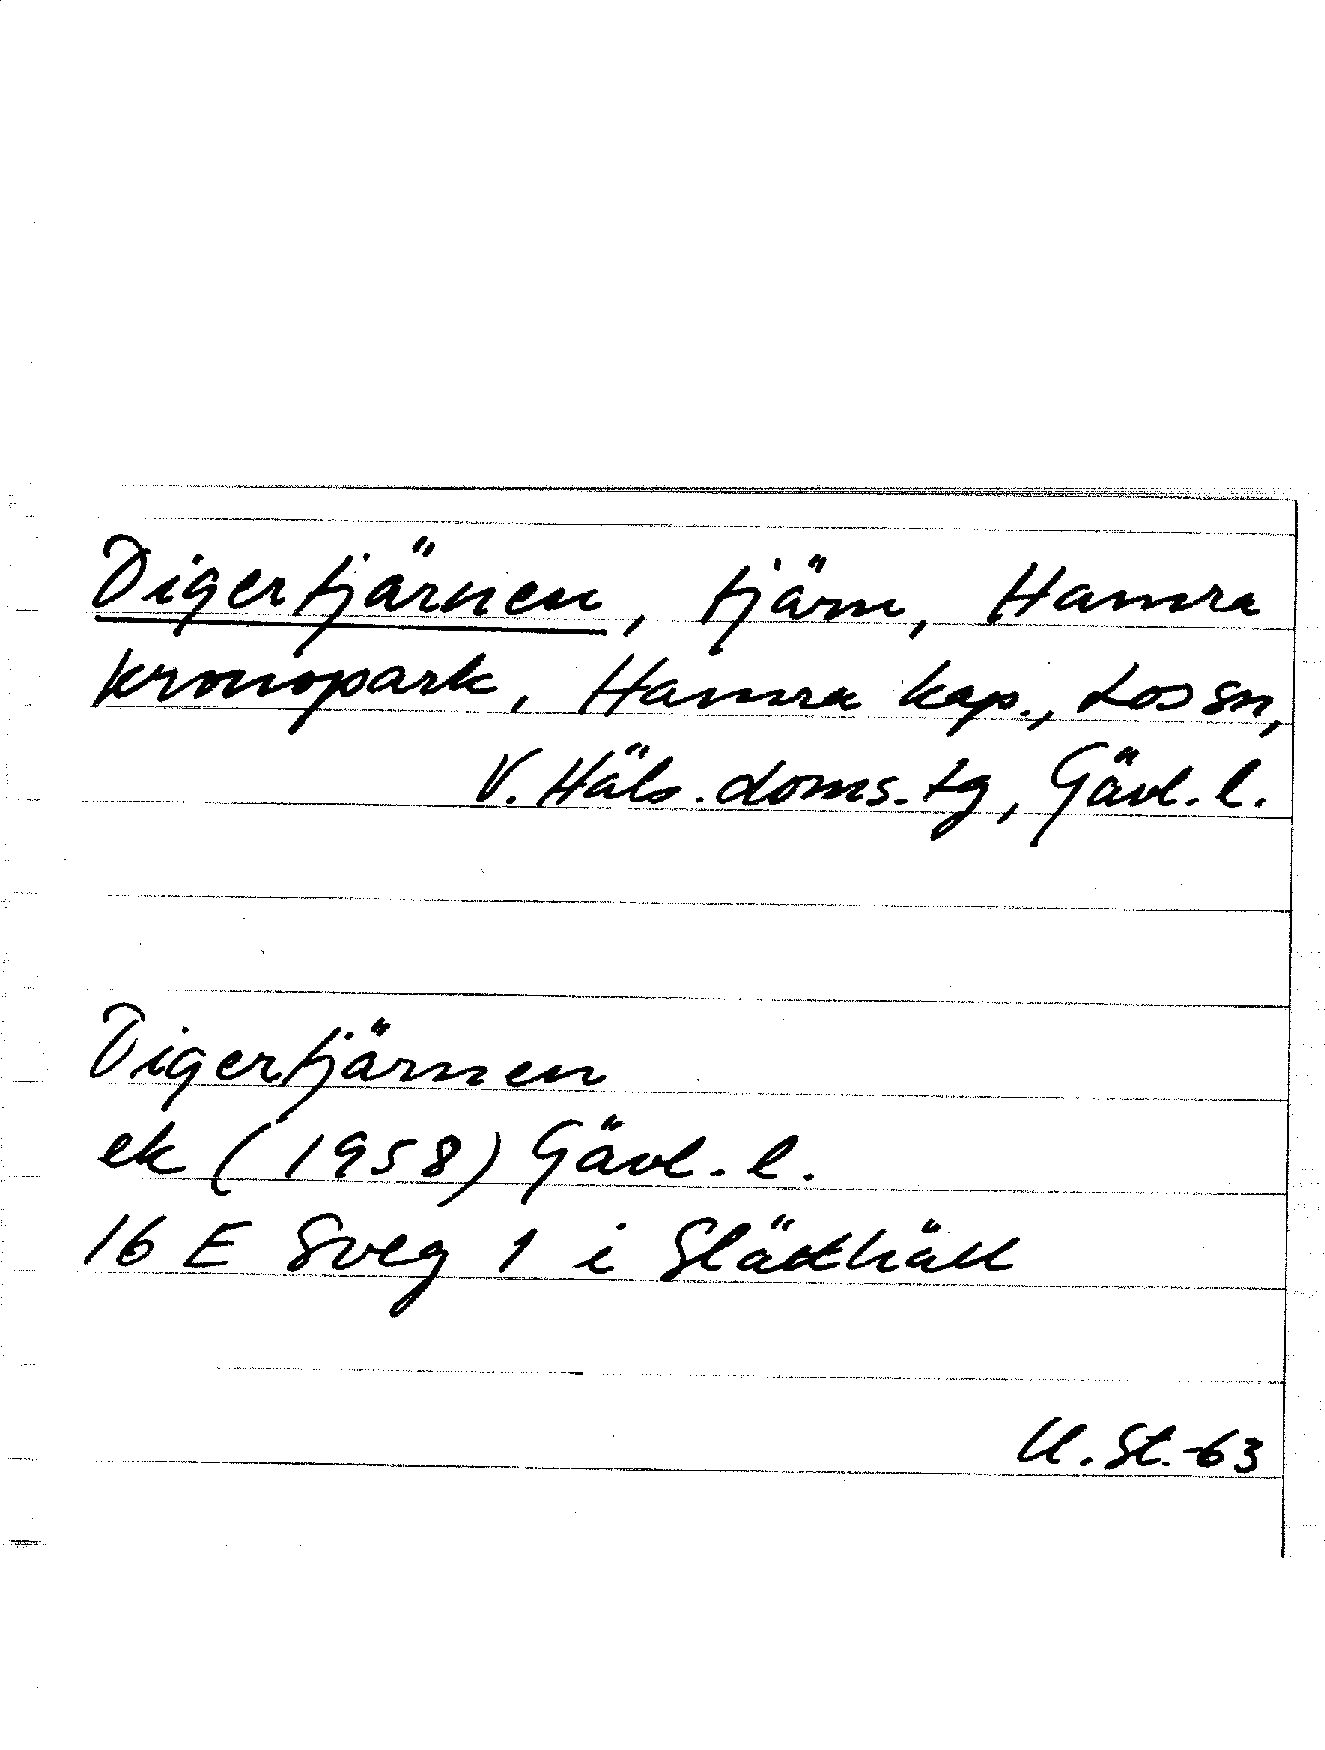 Digertjärnen, tjärn, Hamra
kronopark, Hamra kap., Los sn,
V. Häls. doms. tg, Gävl. l.
Digertjärnen
ek (1958) Gävl. l.
16 E Sveg 1 i Slätthäll
U. St. -63